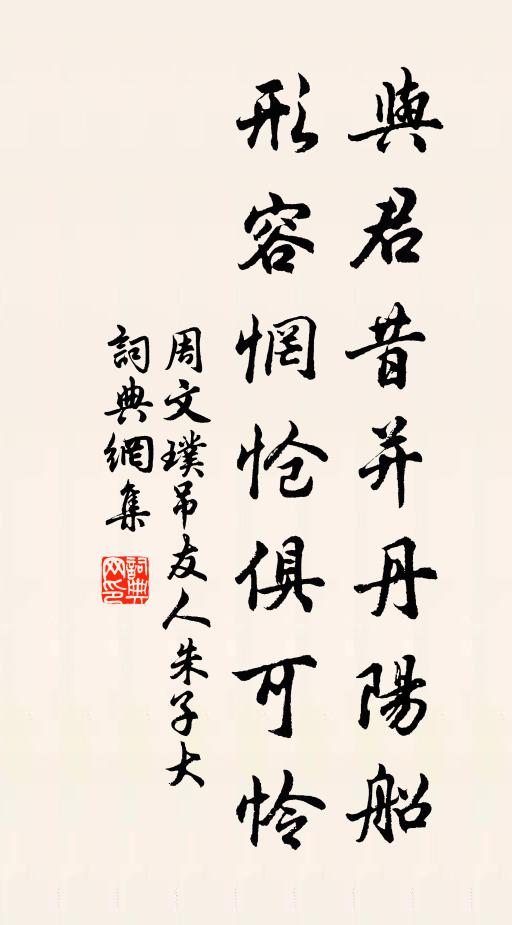 與君昔并丹陽船
形容惘怆俱可怜
周文璞吊友人朱子大
詞典網集
詞典网印